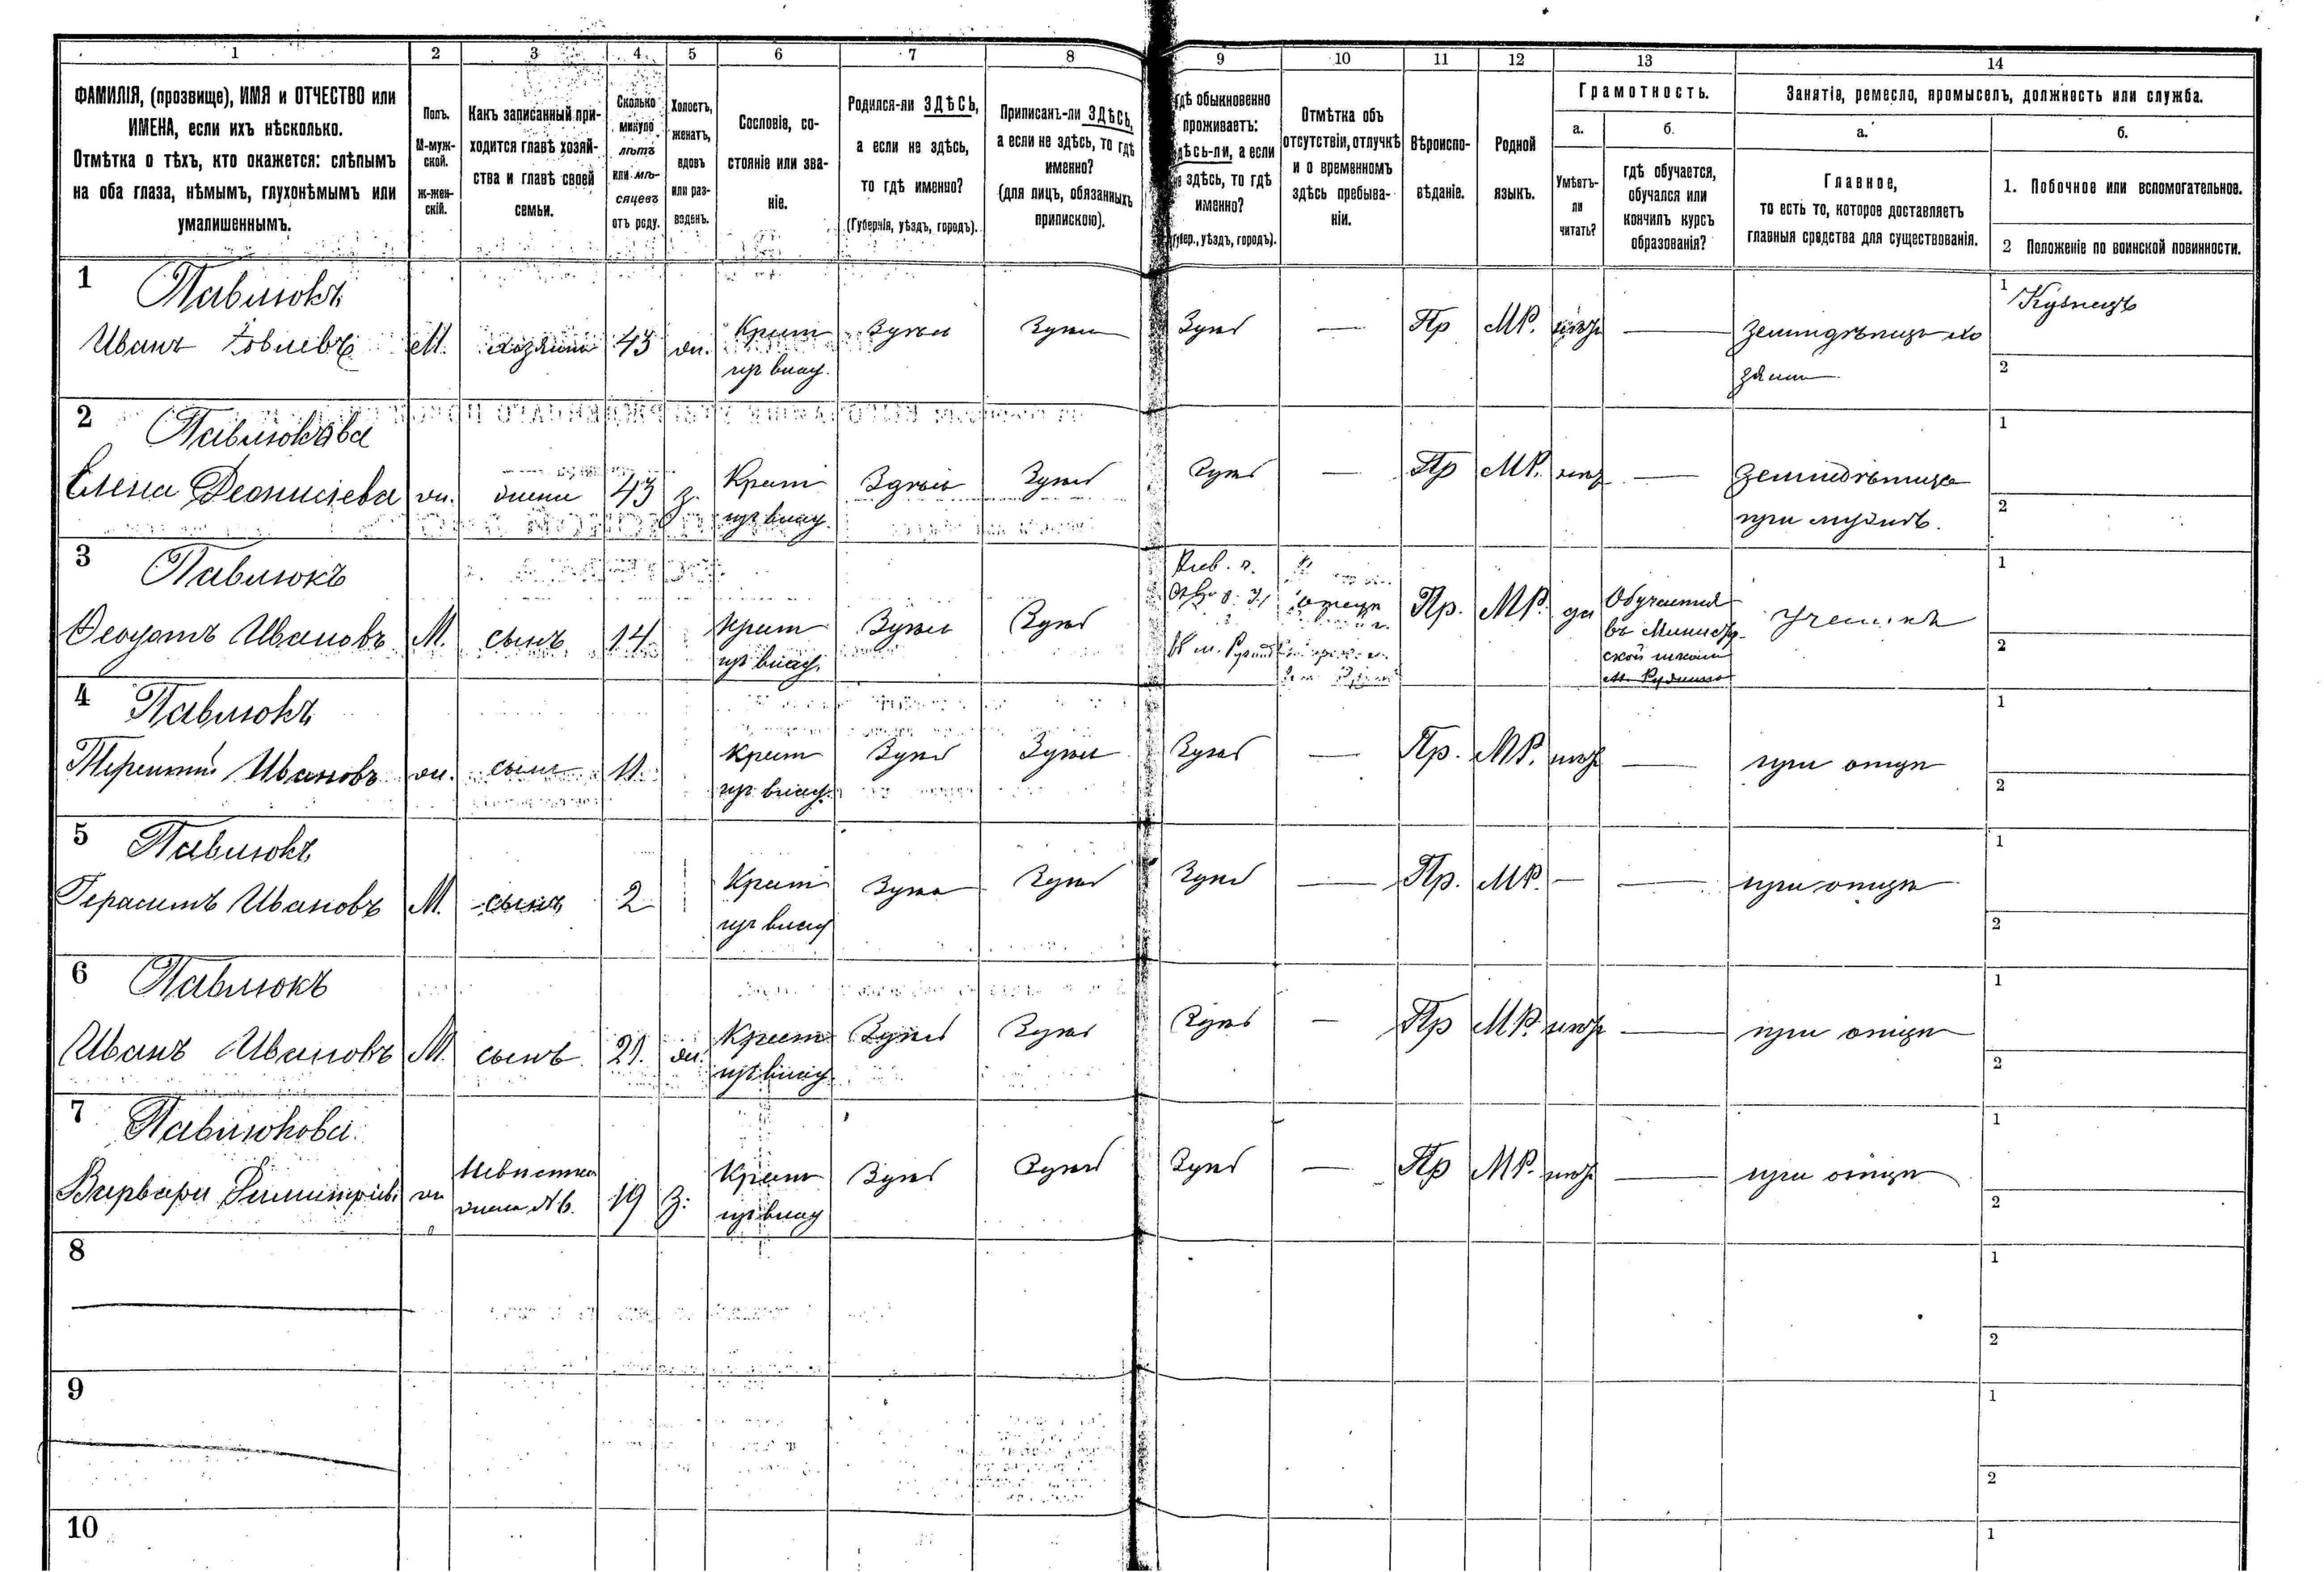 1 2 3 4 5 6 7 8 9 10 11 12 13 14
ФАМИЛІЯ, (прозвище), ИМЯ и ОТЧЕСТВО или
ИМЕНА, если ихъ нѣсколько.
Отмѣтка о тѣхъ, кто окажется: слѣпымъ
на оба глаза, нѣмымъ, глухонѣмымъ или
умалишеннымъ.
Полъ.
М-муж-
ской.
ж-жен-
скій.
Какъ записанный при-
ходится главѣ хозяй-
ства и главѣ своей
семьи.
Сколько
минуло
лѣтъ
или мѣ-
сяцевъ
отъ роду.
Холостъ,
женатъ,
вдовъ
или раз-
веденъ.
Сословіе, со-
стояніе или зва-
ніе.
Родился-ли ЗДѢСЬ,
а если не здѣсь,
то гдѣ именно?
(Губернія, уѣздъ, городъ).
Приписанъ-ли ЗДѢСЬ,
а если не здѣсь, то гдѣ
именно?
(для лицъ, обязанныхъ
припискою).
гдѣ обыкновенно
проживаетъ:
здѣсь-ли, а если
не здѣсь, то гдѣ
именно?
(Губер., уѣздъ, городъ).
Отмѣтка объ
отсутствіи, отлучкѣ
и о временномъ
здѣсь пребыва-
ніи.
Вѣроиспо-
вѣданіе.
Родной
языкъ.
Грамотность.
а.
Умѣетъ-
ли
читать?
б.
гдѣ обучается,
обучался или
кончилъ курсъ
образованія?
Занятіе, ремесло, промыселъ, должность или служба.
а.
Главное,
то есть то, которое доставляетъ
главныя средства для существованія.
б.
1. Побочное или вспомогательное.
2 Положеніе по воинской повинности.
1 Павлюкъ 1 Кузнецъ
Иванъ М. хозяинъ 43 ж. Крест Здѣсь Здѣсь Здѣсь — Пр МР. нѣтъ — Земледѣлецъ хо
изъ влад. зяинъ 2
2 Павлюкова 1
Елена Деонисіева ж. жена 43 з. Крест Здѣсь Здѣсь Здѣсь — Пр МР. нѣтъ — Земледѣлица
изъ влад. при мужѣ. 2
3 Павлюкъ Кіев. г. 1
Ѳеодотъ Ивановъ М. сынъ 14 Крест Здѣсь Здѣсь Пр. МР. да Обучается Ученикъ
изъ влад. въ Министер-
ской школѣ 2
4 Павлюкъ 1
Терентій Ивановъ м. сынъ 11 Крест Здѣсь Здѣсь Здѣсь — Пр. МР. нѣтъ — при отцѣ
изъ влад. 2
5 Павлюкъ 1
Герасимъ Ивановъ М. сынъ 2 Крест Здѣсь Здѣсь Здѣсь — Пр. МР. — — при отцѣ
изъ влад 2
6 Павлюкъ 1
Иванъ Ивановъ М. сынъ 21. ж. Крест Здѣсь Здѣсь Здѣсь — Пр МР. нѣтъ — при отцѣ
изъ влад 2
7 Павлюкова. 1
Варвара Димитріева ж Невѣстка 19 з. Крест Здѣсь Здѣсь Здѣсь — Пр МР. нѣтъ — при отцѣ
жена №6. изъ влад 2
8 1
2
9 1
2
10 1